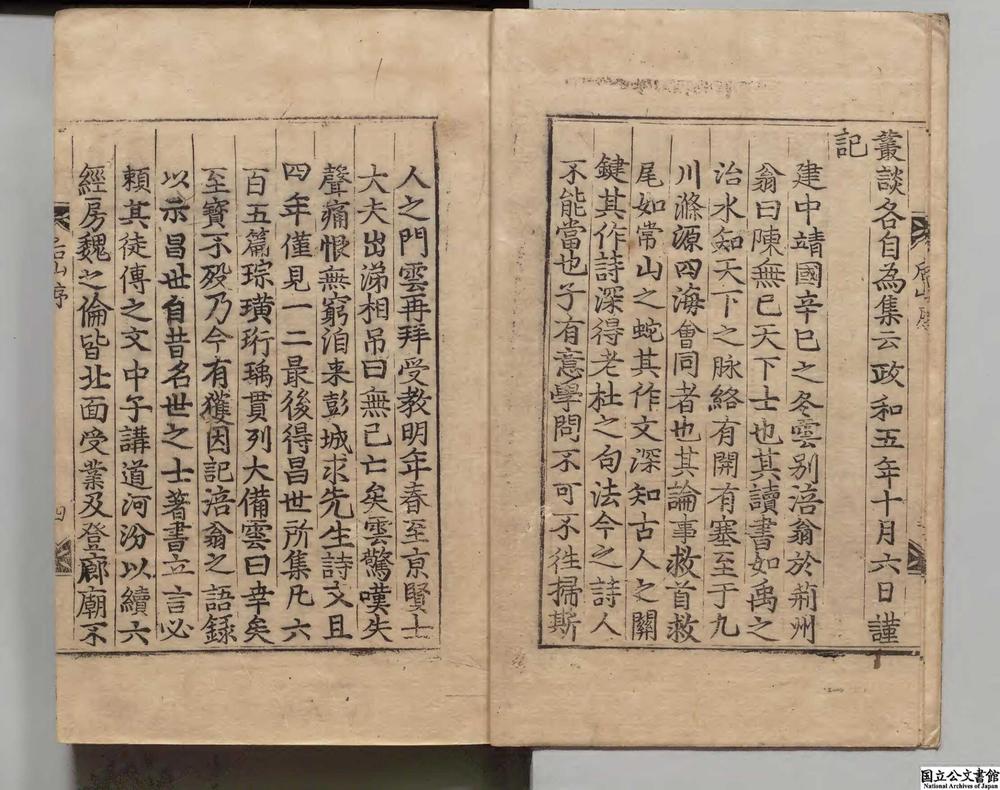 叢談各自為集云政和五年十月六日謹
記
建中靖國辛巳之冬雲別涪翁於荊州
翁曰陳無已天下士也其讀書如禹之
治水知天下之脉絡有開有塞至于九
川滌源四海會同者也其論事救首救
尾如常山之蛇其作文深知古人之關
鍵其作詩深得老杜之句法今之詩人
不能當也子有意學問不可不徃掃斯
人之門雲再拜受教明年春至京賢士
大夫出涕相吊曰無己亡矣雲驚嘆失
聲痛恨無窮洎来彭城求先生詩文且
四年僅見一二最後得昌世所集凡六
百五篇琮璜珩瑀貫列大備雲曰幸矣
至寶不殁乃今有獲因記涪翁之語録
以示昌世自昔名世之士著書立言必
頼其徒傳之文中子講道河汾以續六
經房魏之倫皆北面受業及登廊廟不
后山序
四
国立公文書館
National Archives of Japan